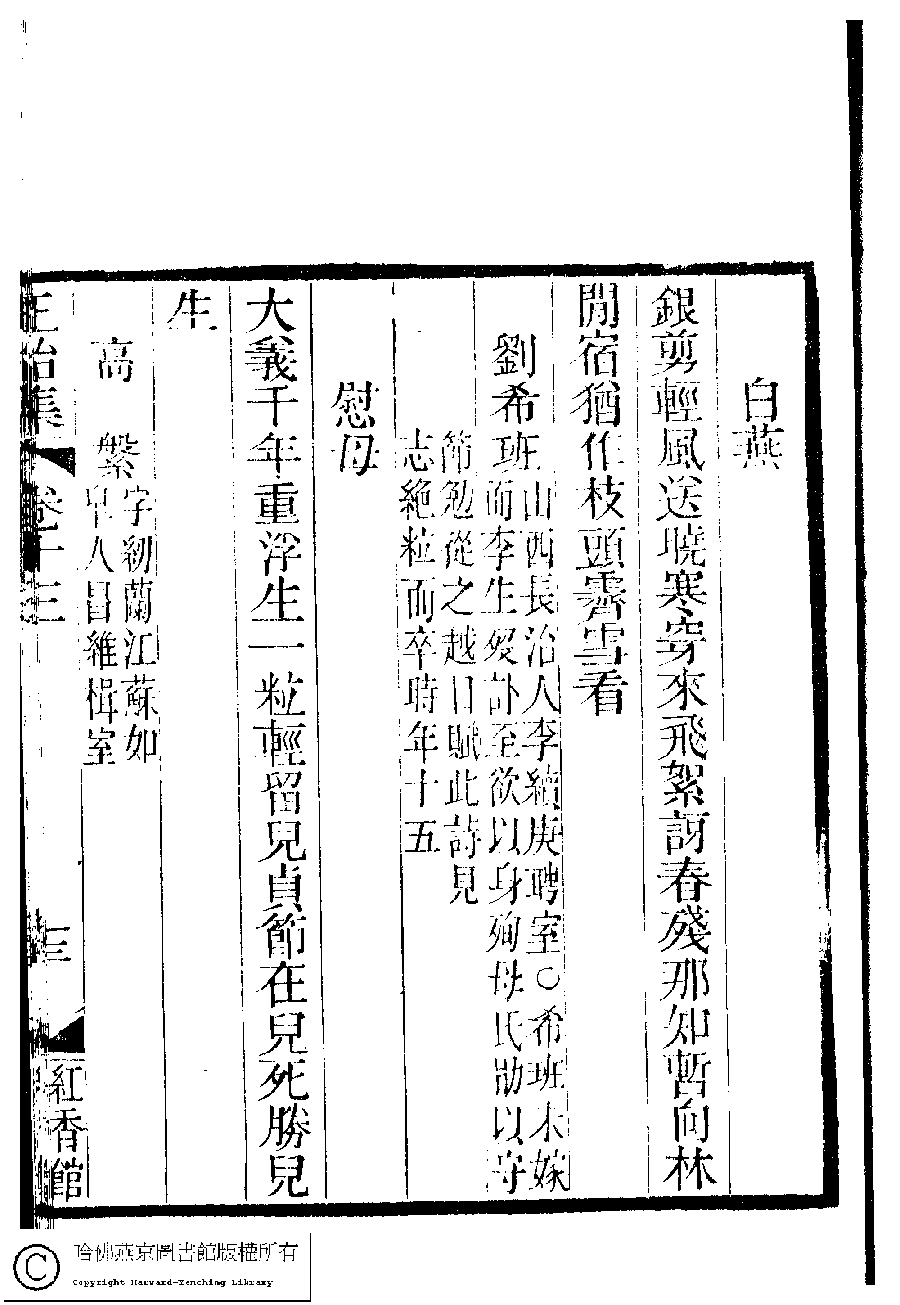 白燕
銀剪輕風送曉寒穿來飛絮訝春殘那知暫向林
閒宿猶作枝頭霽雪看
劉希班山西長治人李續庚聘室○希班未嫁
而李生歿訃至欲以身殉母氏勖以守
節勉從之越日賦此詩見
志絶粒而卒時年十五
慰母
大義千年重浮生一粒輕留兒貞節在兒死勝兒
生
高槃字紉蘭江蘇如
臯人冒維楫室
正始集 卷十三 三 紅香館
哈佛燕京圖書館版權所有
Copyright Harvard-Yenching Library